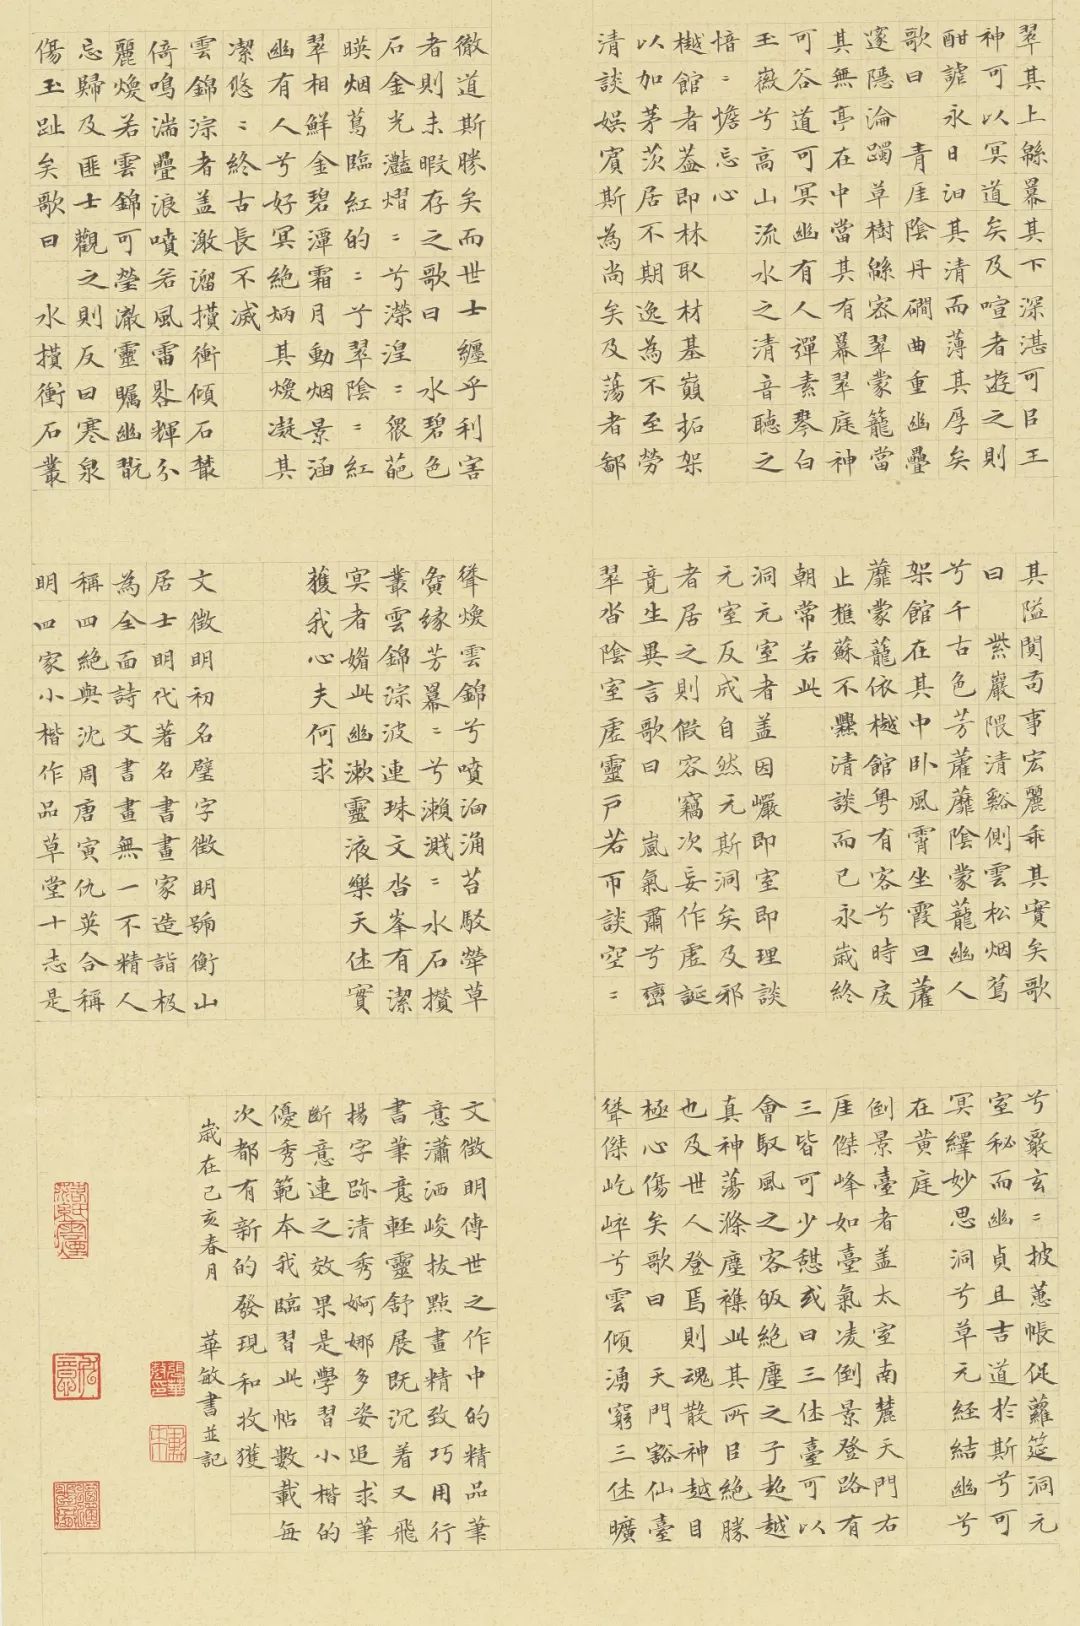 翠其上緜羃其下深湛可㠯王
神可以冥道矣及喧者遊之則
酣謔永日汩其清而薄其厚矣
歌曰 青崖陰丹磵曲重幽疊
邃隱淪躅草樹緜密翠蒙籠當
其無亭在中當其有羃翠庭神
可谷道可冥幽有人彈素琴白
玉徽兮高山流水之清音聽之
愔〻憺忘心
樾館者葢即林取材基巔拓架
以加茅茨居不期逸為不至勞
清談娛賓斯為尚矣及蕩者鄙
其隘闃苟事宏麗乖其實矣歌
曰 紫巖隈清谿側雲松烟蔦
兮千古色芳蘿蘼陰蒙蘢幽人
架館在其中卧風霄坐霞旦蘿
蘼蒙蘢依樾館粵有客兮時戾
止樵蘇不爨清談而已永歲終
朝常若此
洞元室者盖因巖即室即理談
元室反成自然元斯洞矣及邪
者居之則假容竊次妄作虛誕
竟生異言歌曰 嵐氣肅兮巒
翠沓陰室虛靈戸若帀談空〻
兮覈玄〻披蕙帳促蘿筵洞元
室秘而幽貞且吉道於斯兮可
冥繹妙思洞兮草元経結幽兮
在黄庭
倒景臺者盖太室南麓天門右
崖傑峰如臺氣凌倒景登路有
三皆可少憩或曰三休臺可以
會馭風之客皈絕塵之子超越
真神蕩滌塵襟此其所㠯絕勝
也及世人登焉則魂散神越目
極心傷矣歌曰 天門豁仙臺
聳傑屹崒兮雲傾湧窮三休曠
徹道斯勝矣而世士纏乎利害
者則未暇存之歌曰 水碧色
石金光灩熠〻兮濴湟〻偎葩
暎烟蔦臨紅的〻兮翠陰〻紅
翠相鮮金碧潭霜月動烟景涵
幽有人兮好冥絕炳其煥凝其
潔悠〻終古長不滅
雲錦淙者盖激溜攢衝傾石叢
倚鳴湍疊浪噴若風雷畧輝分
麗煥若雲錦可瑩澈靈矚幽翫
忘歸及匪士觀之則反曰寒泉
傷玉趾矣歌曰 水攢衝石叢
聳煥雲錦兮噴洶涌苔駁犖草
夤緣芳羃〻兮瀨濺〻水石攢
叢雲錦淙波連珠文沓峯有潔
冥者媚此幽漱靈液樂天休實
獲我心夫何求
文徵明初名璧字徵明號衡山
居士明代著名書畫家造詣极
為全面詩文書畫無一不精人
稱四絕與沈周唐寅仇英合稱
明四家小楷作品草堂十志是
文徵明傳世之作中的精品筆
意瀟洒峻拔點畫精致巧用行
書筆意輕靈舒展既沉着又飛
揚字跡清秀婀娜多姿追求筆
断意連之效果是學習小楷的
優秀範本我臨習此帖數載每
次都有新的發現和收獲
歲在己亥春月 華敏書並記